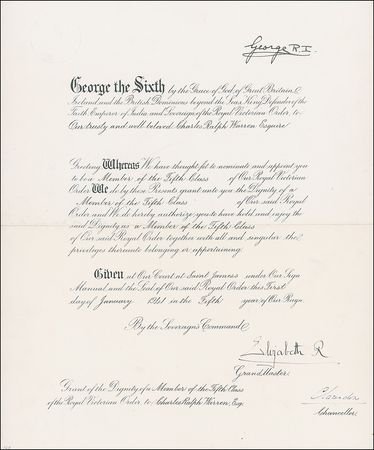 George R.I.
George the Sixth by the Grace of God, of Great Britain,
Ireland and the British Dominions beyond the Seas, King, Defender of the
Faith, Emperor of India and Sovereign of the Royal Victorian Order, to
Our trusty and well beloved Charles Ralph Warren Esquire
Greeting Whereas We have thought fit to nominate and appoint you
to be a Member of the Fifth Class of Our Royal Victorian
Order We do by these Presents grant unto you the Dignity of a
Member of the Fifth Class of Our said Royal
Order and We do hereby authorize you to have hold and enjoy the
said Dignity as a Member of the Fifth Class
of Our said Royal Order together with all and singular the
privileges thereunto belonging or appertaining.
Given at Our Court at Saint James's under Our Sign
Manual and the Seal of Our said Royal Order this First
day of January 1941 in the Fifth year of Our Reign.
By the Sovereign's Command
Elizabeth R
Grand Master.
Grant of the Dignity of a Member of the Fifth Class
of the Royal Victorian Order to Charles Ralph Warren Esq.
Chancellor.